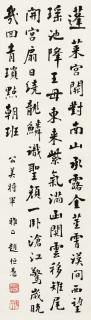 蓬萊宮闕對南山承露金莖霄漢間西望
瑤池降王母東來紫氣滿函關雲移雉尾
開宮扇日繞龍鱗識聖顏一臥滄江驚歲晚
幾回青瑣點朝班
公美將軍 雅正 趙恒惕